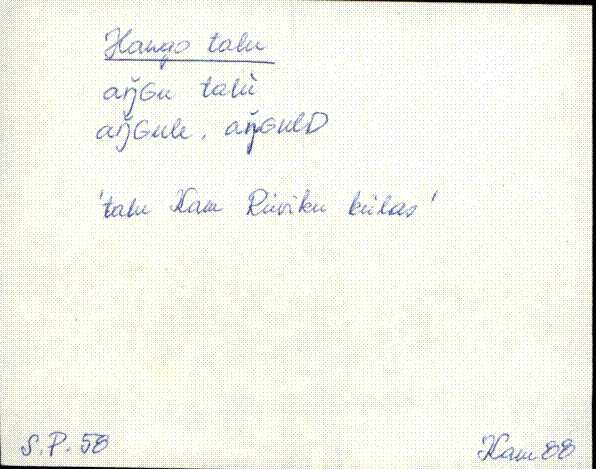 Hango talu
aŋ̆Gu talù
aŋ̆Gule, aŋ̆GulD
'talu Kam Rüviku külas'
S.P. 58
Kam 88